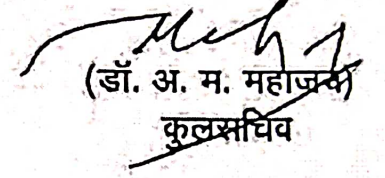 (डॉ. अ. म. महाजन)
कुलसचिव